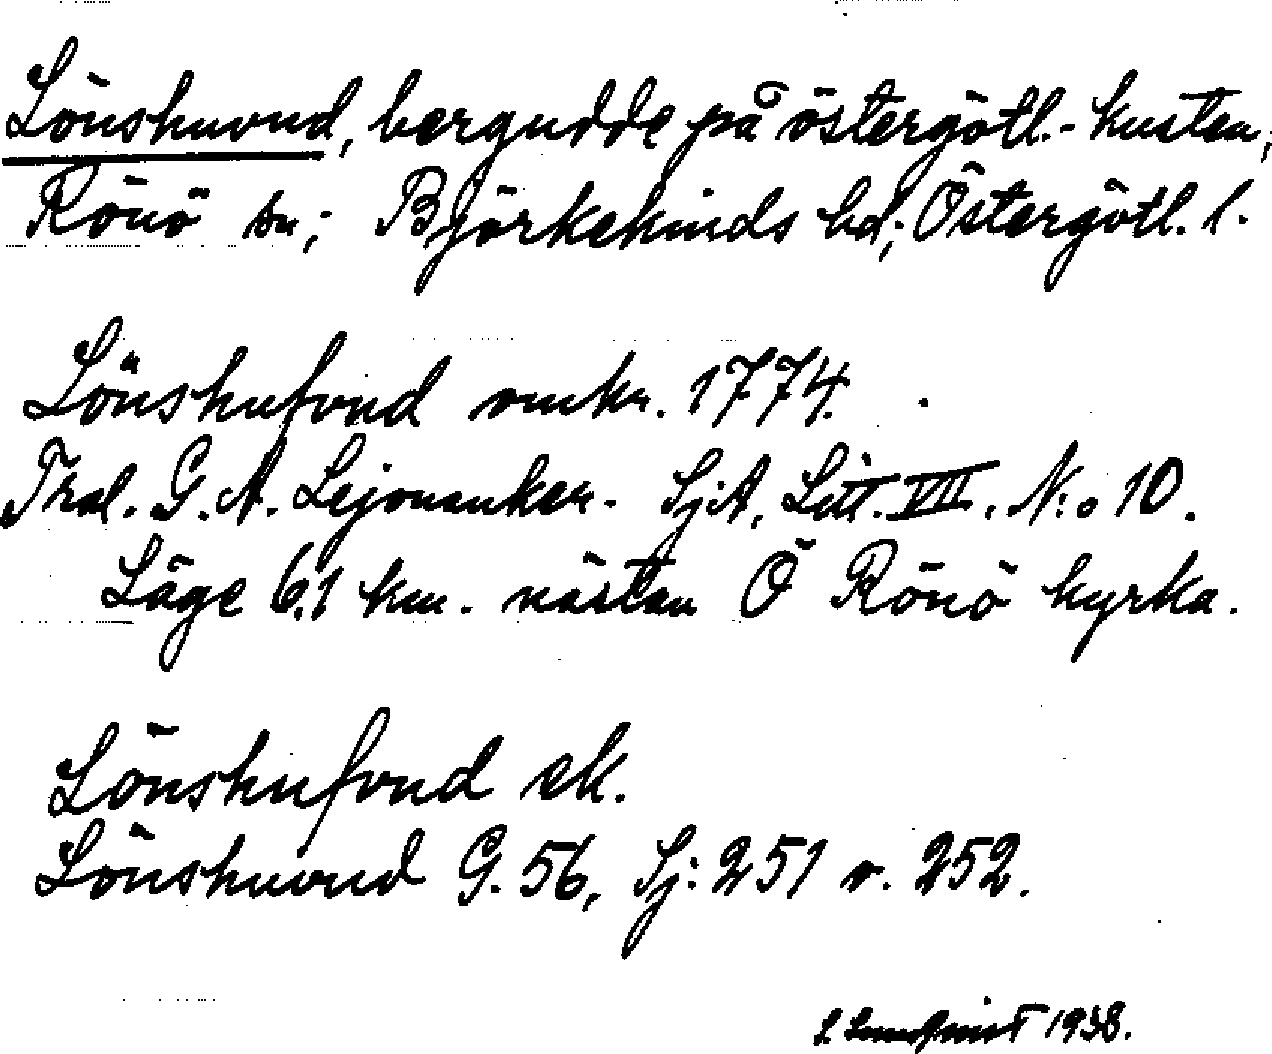 Lönshuvud, bergudde på östergötl.-kusten,
Rönö sn; Björkekinds hd; Östergötl. l.
Lönshufvud omkr. 1774.
Thal. G. A. Lejonanker. SjA, Litt. VII. N:o 10.
Läge 6.1 km. nästan Ö Rönö kyrka.
Lönshufvud ek.
Lönshuvud G. 56, Sj: 251 o. 252.
1938.